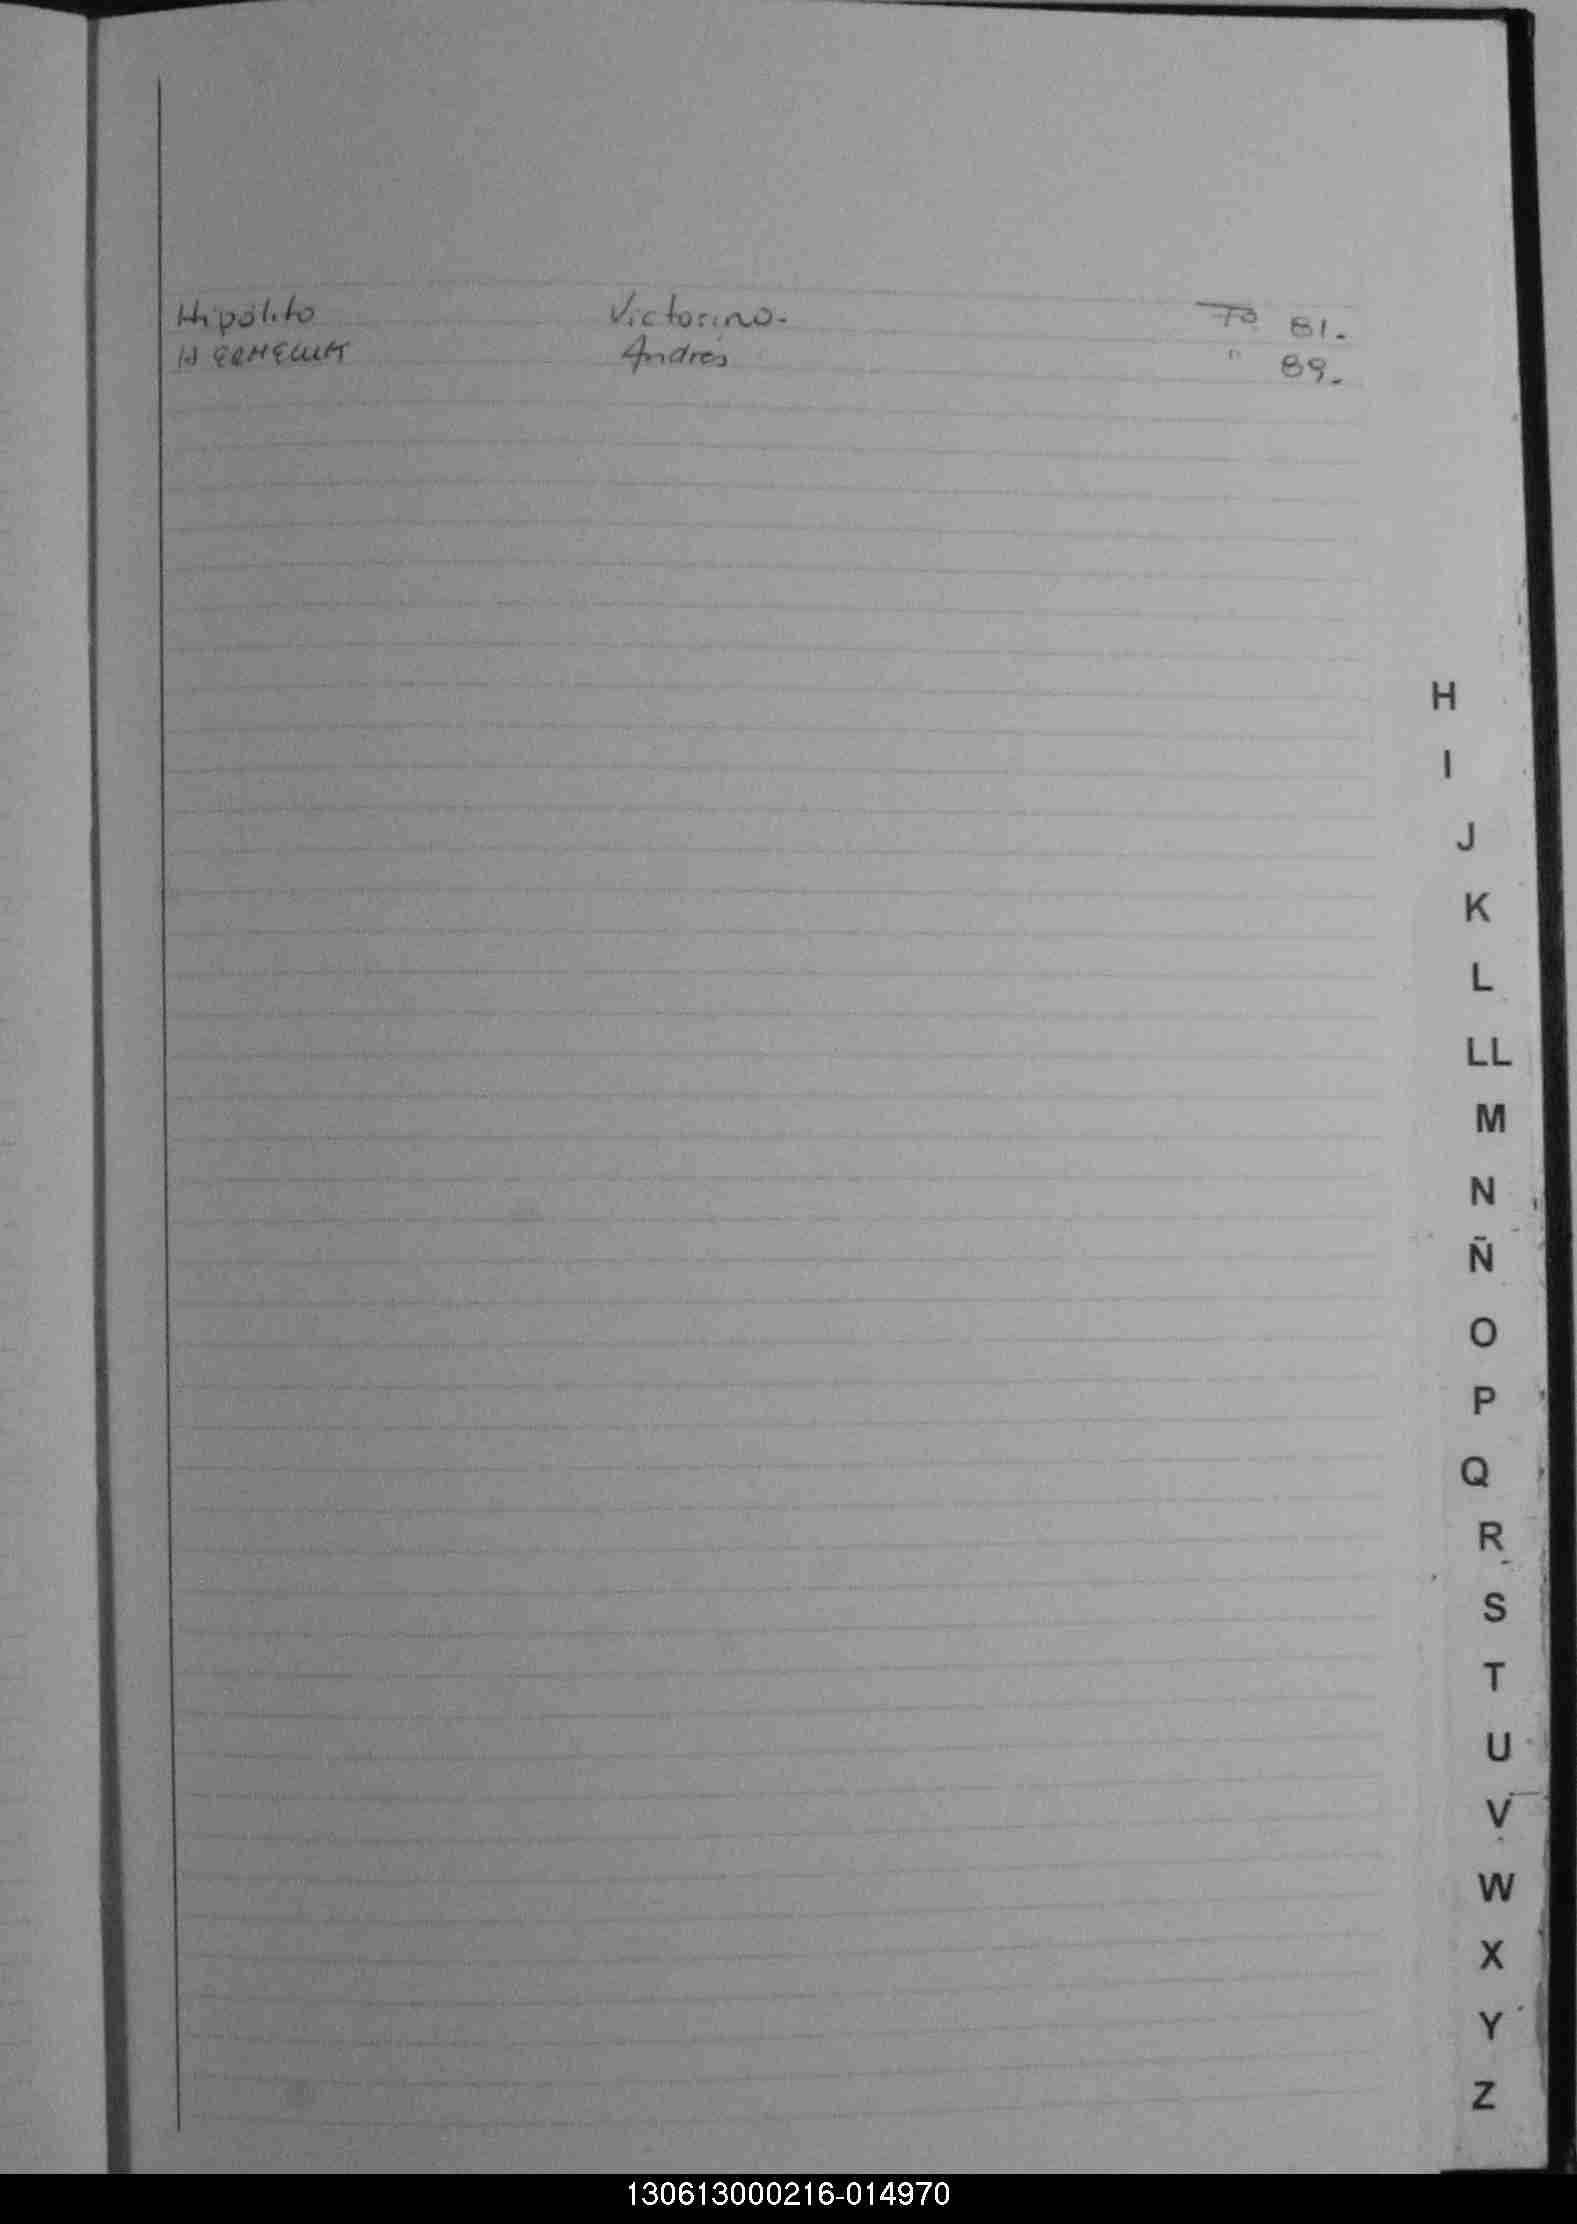 Hipólito Victorino. Fo 81.
Andrés " 89.
H
I
J
K
L
LL
M
N
Ñ
O
P
Q
R
S
T
U
V
W
X
Y
Z
130613000216-014970